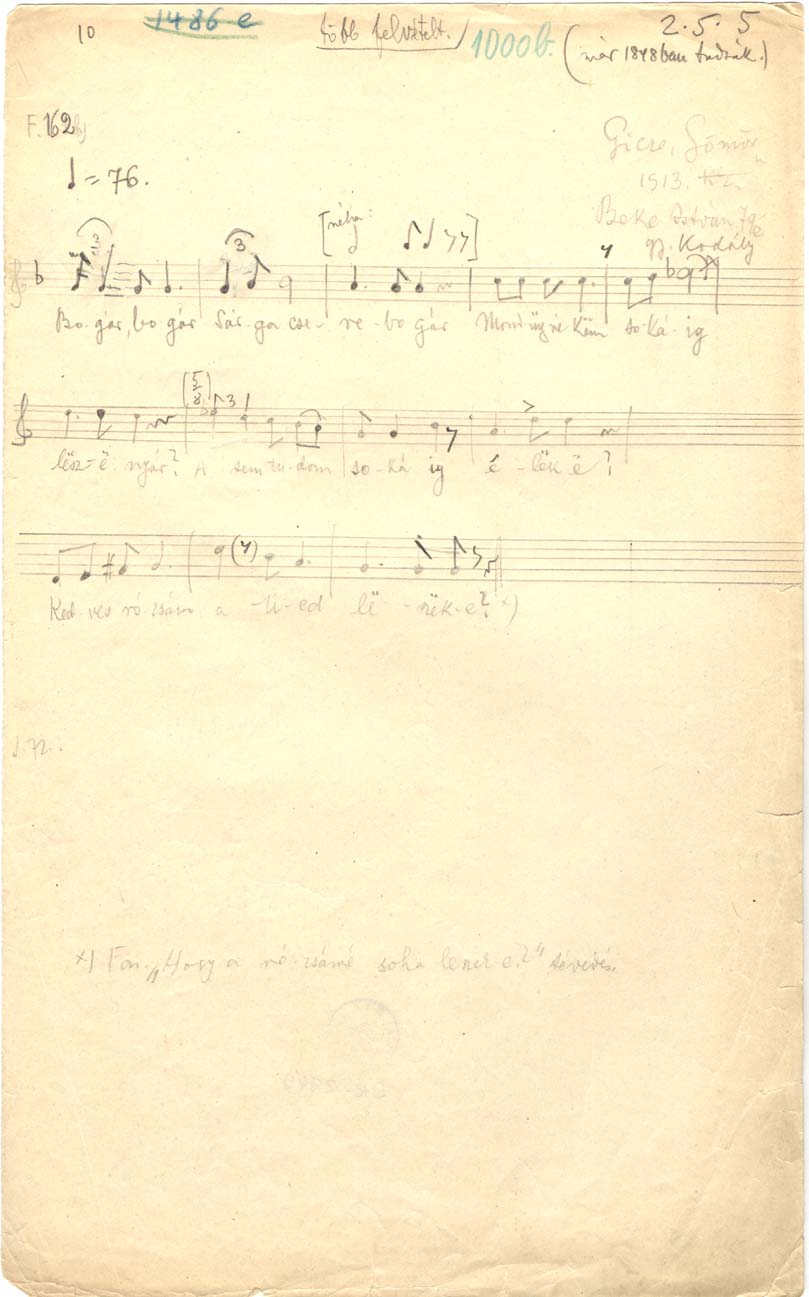 10 1486 e több felvételt. 1000b. 2.5.5
(már 1848ban tudták.)
F.162b)
Gicze, Gömör
♩=76. 1913.
Beke István 79é
[néha: ] gy. Kodály
3 3
Bo-gár, bo gár Sár-ga cse-re-bo gár Mond-ûg né-këm so-ká-ig
(5/8) 3
lësz-ë nyár? A sem tu-dom so-ká ig é-lëk ë?
Ked-ves ró-zsám a ti-ed lë-szëk-e? x)
♩72.
x) Fon. „Hogy a ró-zsámé soha leszek-e?" tévedés.